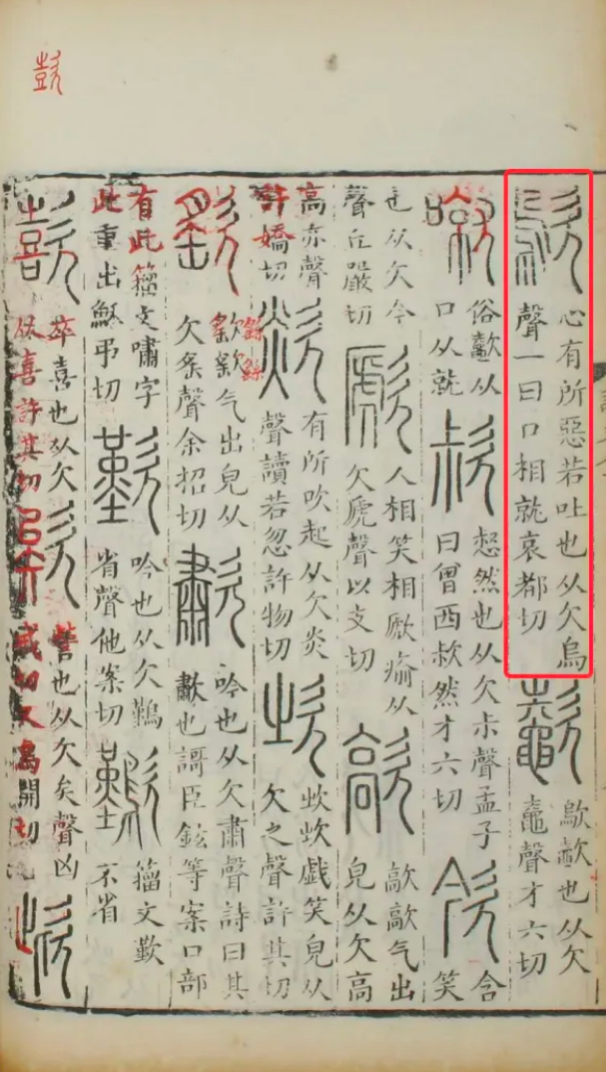 歍
心有所惡若吐也从欠烏
聲一曰口相就哀都切
𣤶
歍𣤶也从欠
鼀聲才六切
噈
俗𣤶从
口从就
㰗
惄然也从欠尗聲孟子
曰曾西㰗然才六切
㰸
含
笑
也从欠今
聲丘嚴切
人相笑相歋瘉从
欠虒聲以支切
歊
歊歊气出
皃从欠高
高亦聲
許嬌切
欻
有所吹起从欠炎
聲讀若忽許物切
㰞
㰞㰞戲笑皃从
欠之聲許其切
气出皃从
聲余招切
歗
吟也从欠肅聲詩曰其
歗也謌臣鉉等案口部
有此籀文嘯字
此重出穌弔切
歎
吟也从欠鷬
省聲他案切
籀文歎
不省
歖
卒喜也从欠
从喜許其切
欸
訾也从欠矣聲凶
戒切又烏開切